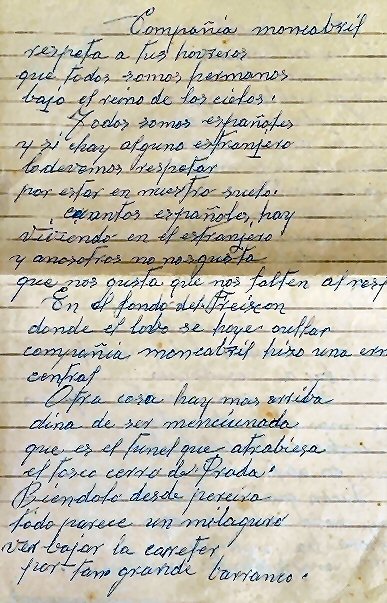 Compañia moncabril
respeta a tus hovreros
que todos somos hermanos
bajo el reino de los cielos.
Todos somos españoles
y si hay alguno estranjero
lo devemos respetar
por estar en nuestro suelo.
cuantos españoles, hay
viviendo en el estranjero
y anosotros no nos gusta
que nos gusta que nos falten al resp
En el fondo del Treiscon
donde el lobo se hoye aullar
compañia moncabril hizo una
central
Otra cosa hay mas arriba
dina de ser menciunada
que es el tunel que atrabiesa
el tosco cerro de Prada.
Biendolo desde pereira
todo parece un milaguro
ver bajar la carreter
por tan grande barranco.